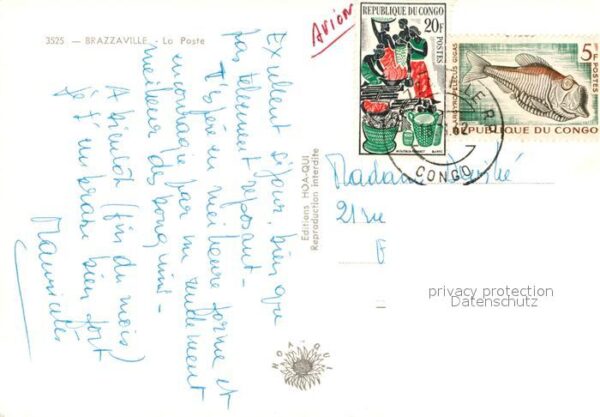 3525 — BRAZZAVILLE - La Poste
Avion
RÉPUBLIQUE DU CONGO
20F
POSTES
5F
POSTES
ARGYROPELECUS GIGAS
RÉPUBLIQUE DU CONGO
CONGO
Excellent séjour, bien que
pas tellement reposant -
T'espère en meilleure forme et
encouragée par un rendement
meilleur des
A bientôt (fin du mois)
je t'embrasse bien fort
Editions HOA-QUI
Reproduction interdite
Madame
21 rue
HOA-QUI
privacy protection
Datenschutz